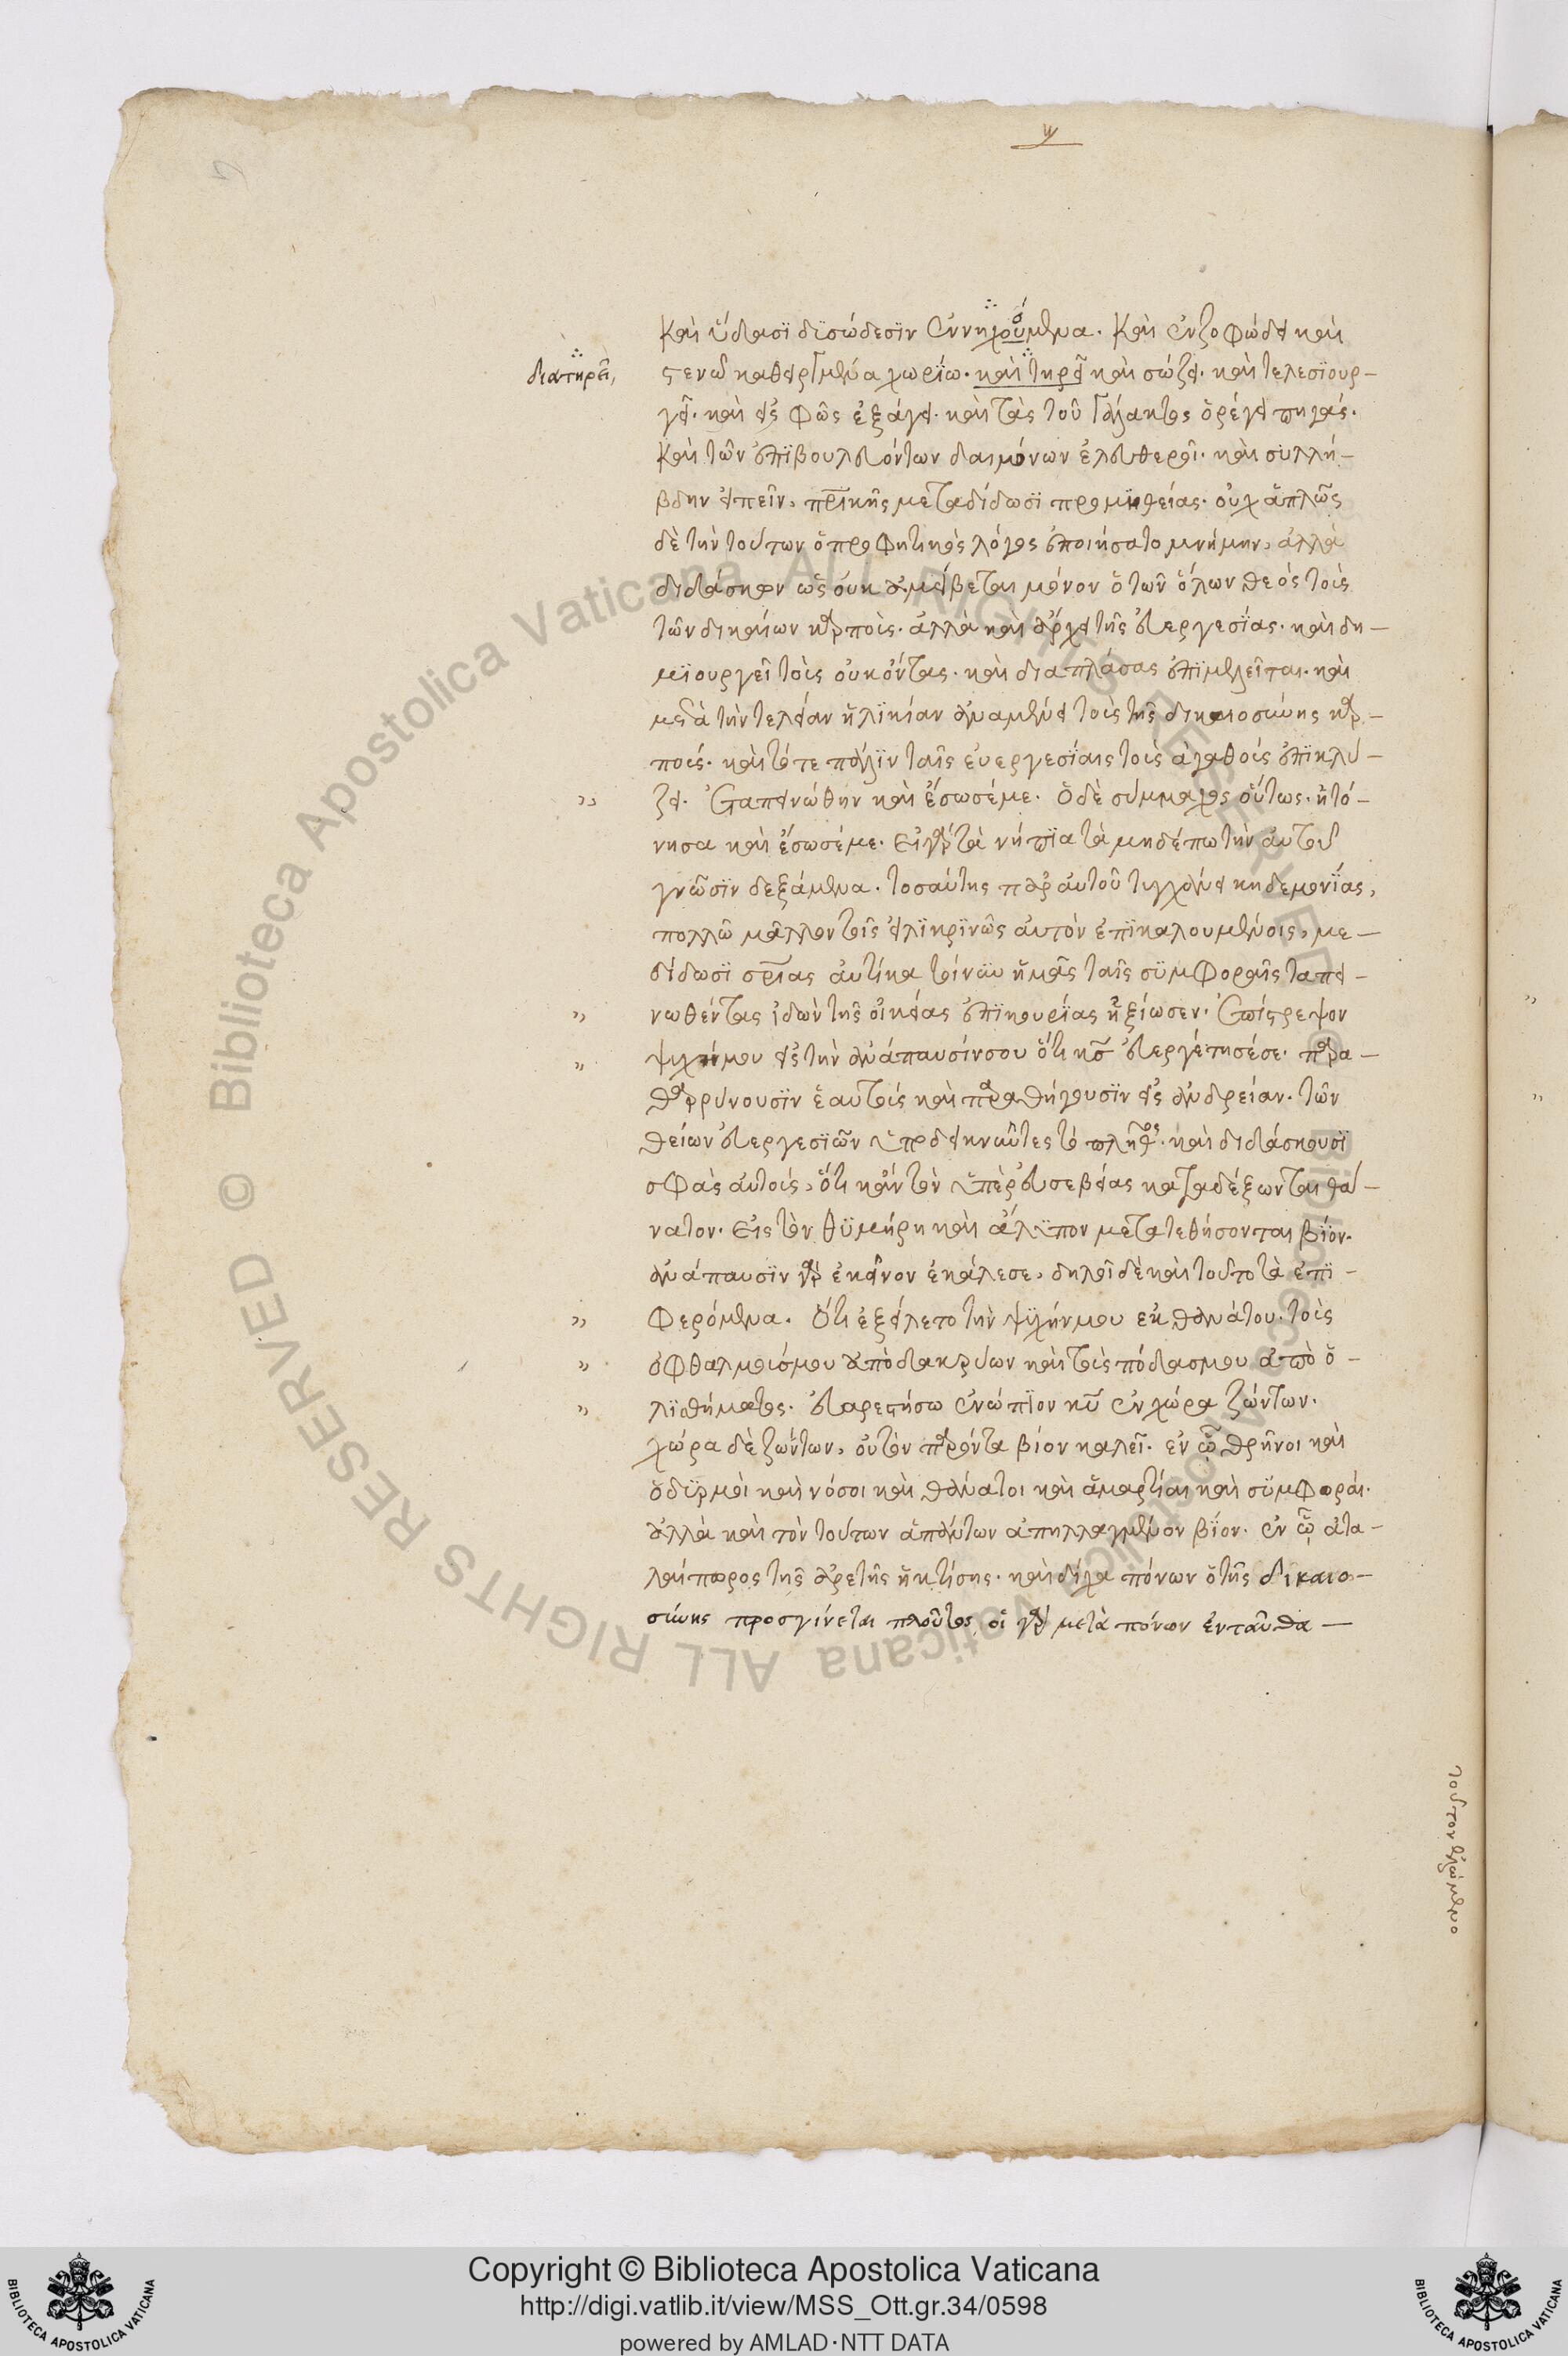 καὶ ὕδασϊ δϊσώδεσϊν ἐννηχούμενα. καὶ ἐν ζοφώδει καὶ
διατηρεῖ,
στενῶ καθειργμένα χωρϊω. καὶ τηρεῖ καὶ σώζει. καὶ τελεσϊουρ-
γεῖ. καὶ εἰς φῶς ἐξάγει. καὶ τὰς τοῦ γάλακτος ὀρέγει πηγάς.
καὶ τῶν ἐπϊβουλευόντων δαιμόνων ἐλευθεροῖ. καὶ συλλή-
βδην εἰπεῖν, πρικῆς μεταδίδωσϊ προμηθείας. οὐχ ἁπλῶς
δὲ τὴν τούτων ὁ προφητικὸς λόγος ἐποιήσατο μνήμην, ἀλλὰ
διδάσκων ὡς οὐκ ἀμείβεται μόνον ὁ τῶν ὅλων θεὸς τοὺς
τῶν δικαίων καρποὺς. ἀλλὰ καὶ ἄρχει τῆς εὐεργεσίας. καὶ δη-
μϊουργεῖ τοὺς οὐκ ὄντας. καὶ διαπλάσας ἐπϊμελεῖται. καὶ
μετὰ τὴν τελείαν ἡλϊκίαν ἀναμένει τοὺς τῆς δικαιοσύνης καρ-
ποὺς. καὶ τότε πάλϊν ταῖς εὐεργεσίαις τοὺς ἀγαθοὺς ἐπϊκλύ-
ζει. Ἐταπεινώθην καὶ ἔσωσέ με. ὁ δὲ σύμμαχος οὕτως. ἠτό-
νησα καὶ ἔσωσέ με. εἰ γὰρ τὰ νήπϊα τὰ μηδέπω τὴν αὐτοῦ
γνῶσϊν δεξάμενα. τοσαύτης παρ αὐτοῦ τυγχάνει κηδεμονϊας,
πολλῶ μᾶλλον τοῖς εἰλϊκρϊνῶς αὐτὸν ἐπϊκαλουμένοις, με-
δίδωσϊ σριας αὐτίκα τοίνϋν ἡμᾶς ταῖς σϋμφοραῖς ταπει-
νωθέντας ἰδὼν τῆς οἰκείας ἐπϊκουρίας ἠξίωσεν. Ἐπίστρεψον
ψυχή μου εἰς τὴν ἀνάπαυσίν σου ὅτι κς εὐεργέτησέ σε. παρα-
θαρρύνουσϊν ἑαυτοὺς καὶ παραθήγουσϊν εἰς ἀνδρείαν. τῶν
θείων εὐεργεσϊῶν ὑποδεικνῦντες τὸ πλῆθος. καὶ διδάσκουσϊ
σφᾶς αὐτοὺς, ὅτι κἂν τὸν ὑπὲρ εὐσεβείας καταδέξωνται θά-
νατον. εἰς τὸν θϋμήρη καὶ ἄλϋπον μετατεθήσονται βίον.
ἀνάπαυσϊν γὰρ ἐκεῖνον ἐκάλεσε, δηλοῖ δὲ καὶ τοῦτο τὰ ἐπϊ-
φερόμενα. ὅτι ἐξείλετο τὴν ψϋχήν μου ἐκ θανάτου. τοὺς
ὀφθαλμούς μου ἀπὸ δακρύων καὶ τοὺς πόδας μου ἀπὸ ὀ-
λϊσθήματος. εὐαρεστήσω ἐνώπϊον κυ ἐν χώρα ζώντων.
χώρα δὲ ζώντων, οὐ τὸν παρόντα βίον καλεῖ. ἐν ᾧ θρῆνοι καὶ
ὀδϋρμοὶ καὶ νόσοι καὶ θάνατοι καὶ ἁμαρτίαι καὶ σϋμφοραί.
ἀλλὰ καὶ τὸν τούτων ἁπάντων ἀπηλλαγμένον βίον. ἐν ᾧ ἀτα-
λαίπωρος τῆς ἀρετῆς ἡ κτίσης. καὶ δίχα πόνων ὁ τῆς δικαιο-
σύνης προσγίνεται πλοῦτος οἱ γὰρ μετὰ πόνων ἐνταῦθα
Copyright © Biblioteca Apostolica Vaticana
http://digi.vatlib.it/view/MSS_Ott.gr.34/0598
powered by AMLAD·NTT DATA
BIBLIOTECA APOSTOLICA VATICANA
BIBLIOTECA APOSTOLICA VATICANA
© Biblioteca Apostolica Vaticana ALL RIGHTS RESERVED
© Biblioteca Apostolica Vaticana ALL RIGHTS RESERVED